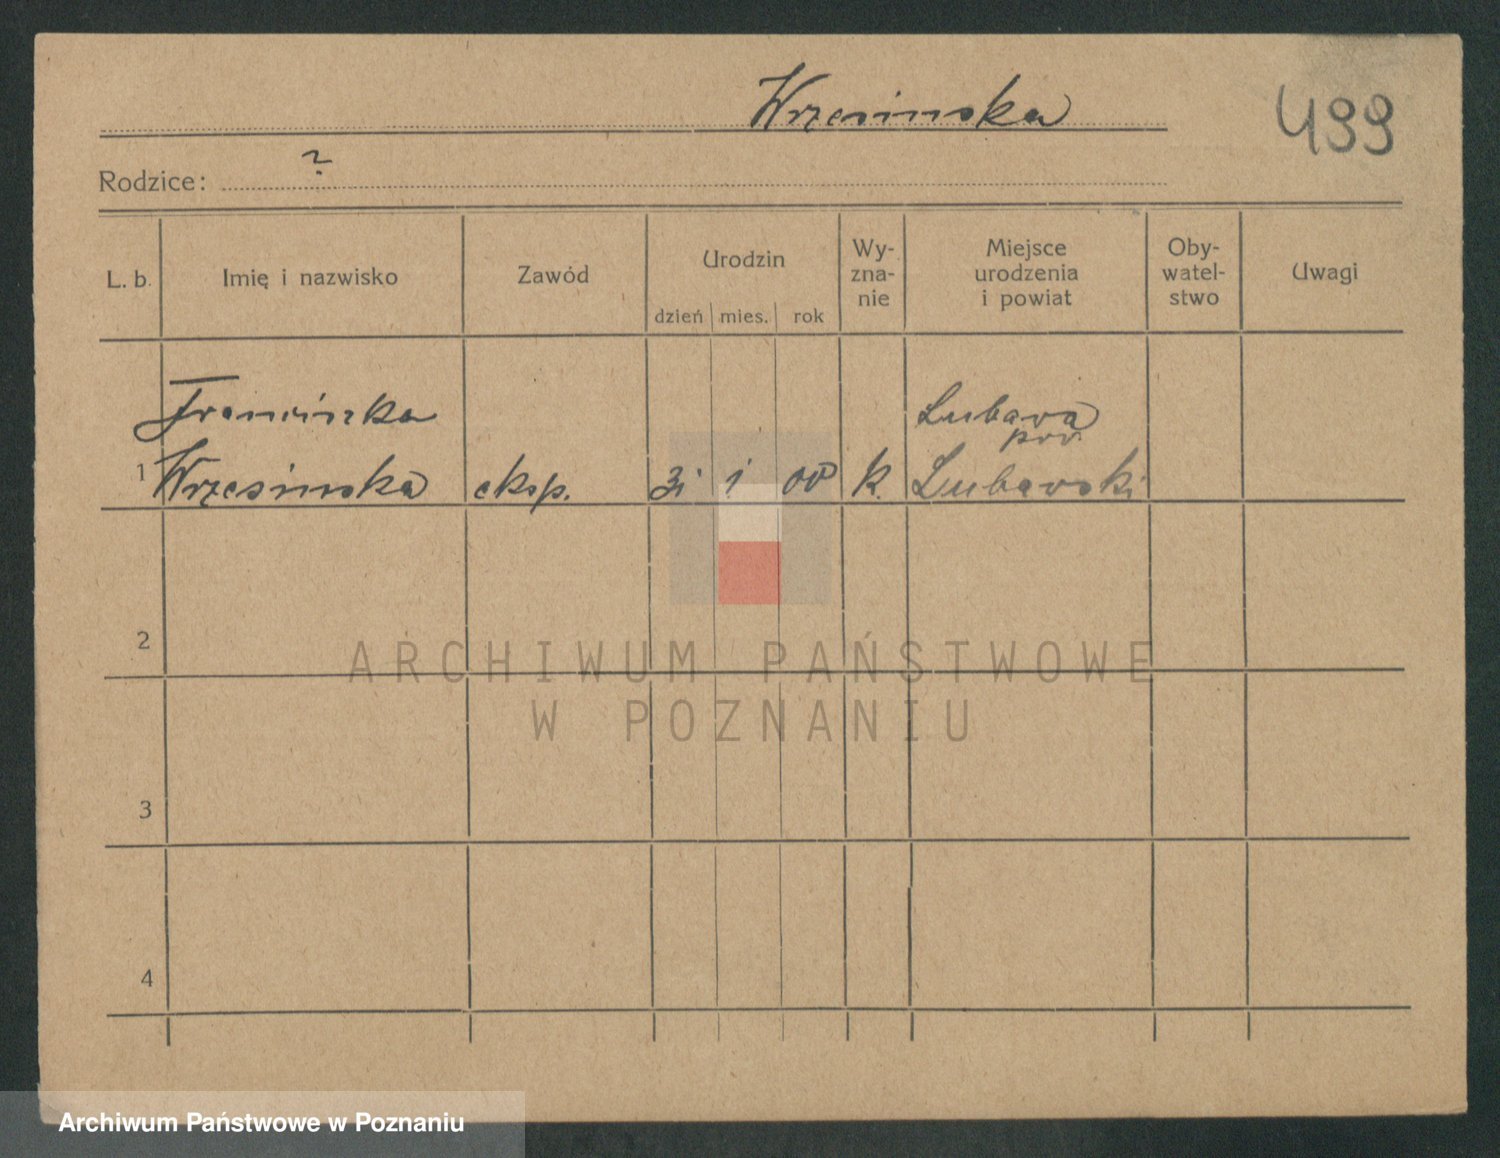 Wrzesinska
499
Rodzice: ?
L. b. Imię i nazwisko Zawód Urodzin dzień mies. rok Wy-zna-nie Miejsce urodzenia i powiat Oby-watel-stwo Uwagi
Franciszka
Lubawa
pow.
1 Wrzesinska eksp. 31 1 00 k. Lubawski
2
3
4
ARCHIWUM PAŃSTWOWE
W POZNANIU
Archiwum Państwowe w Poznaniu